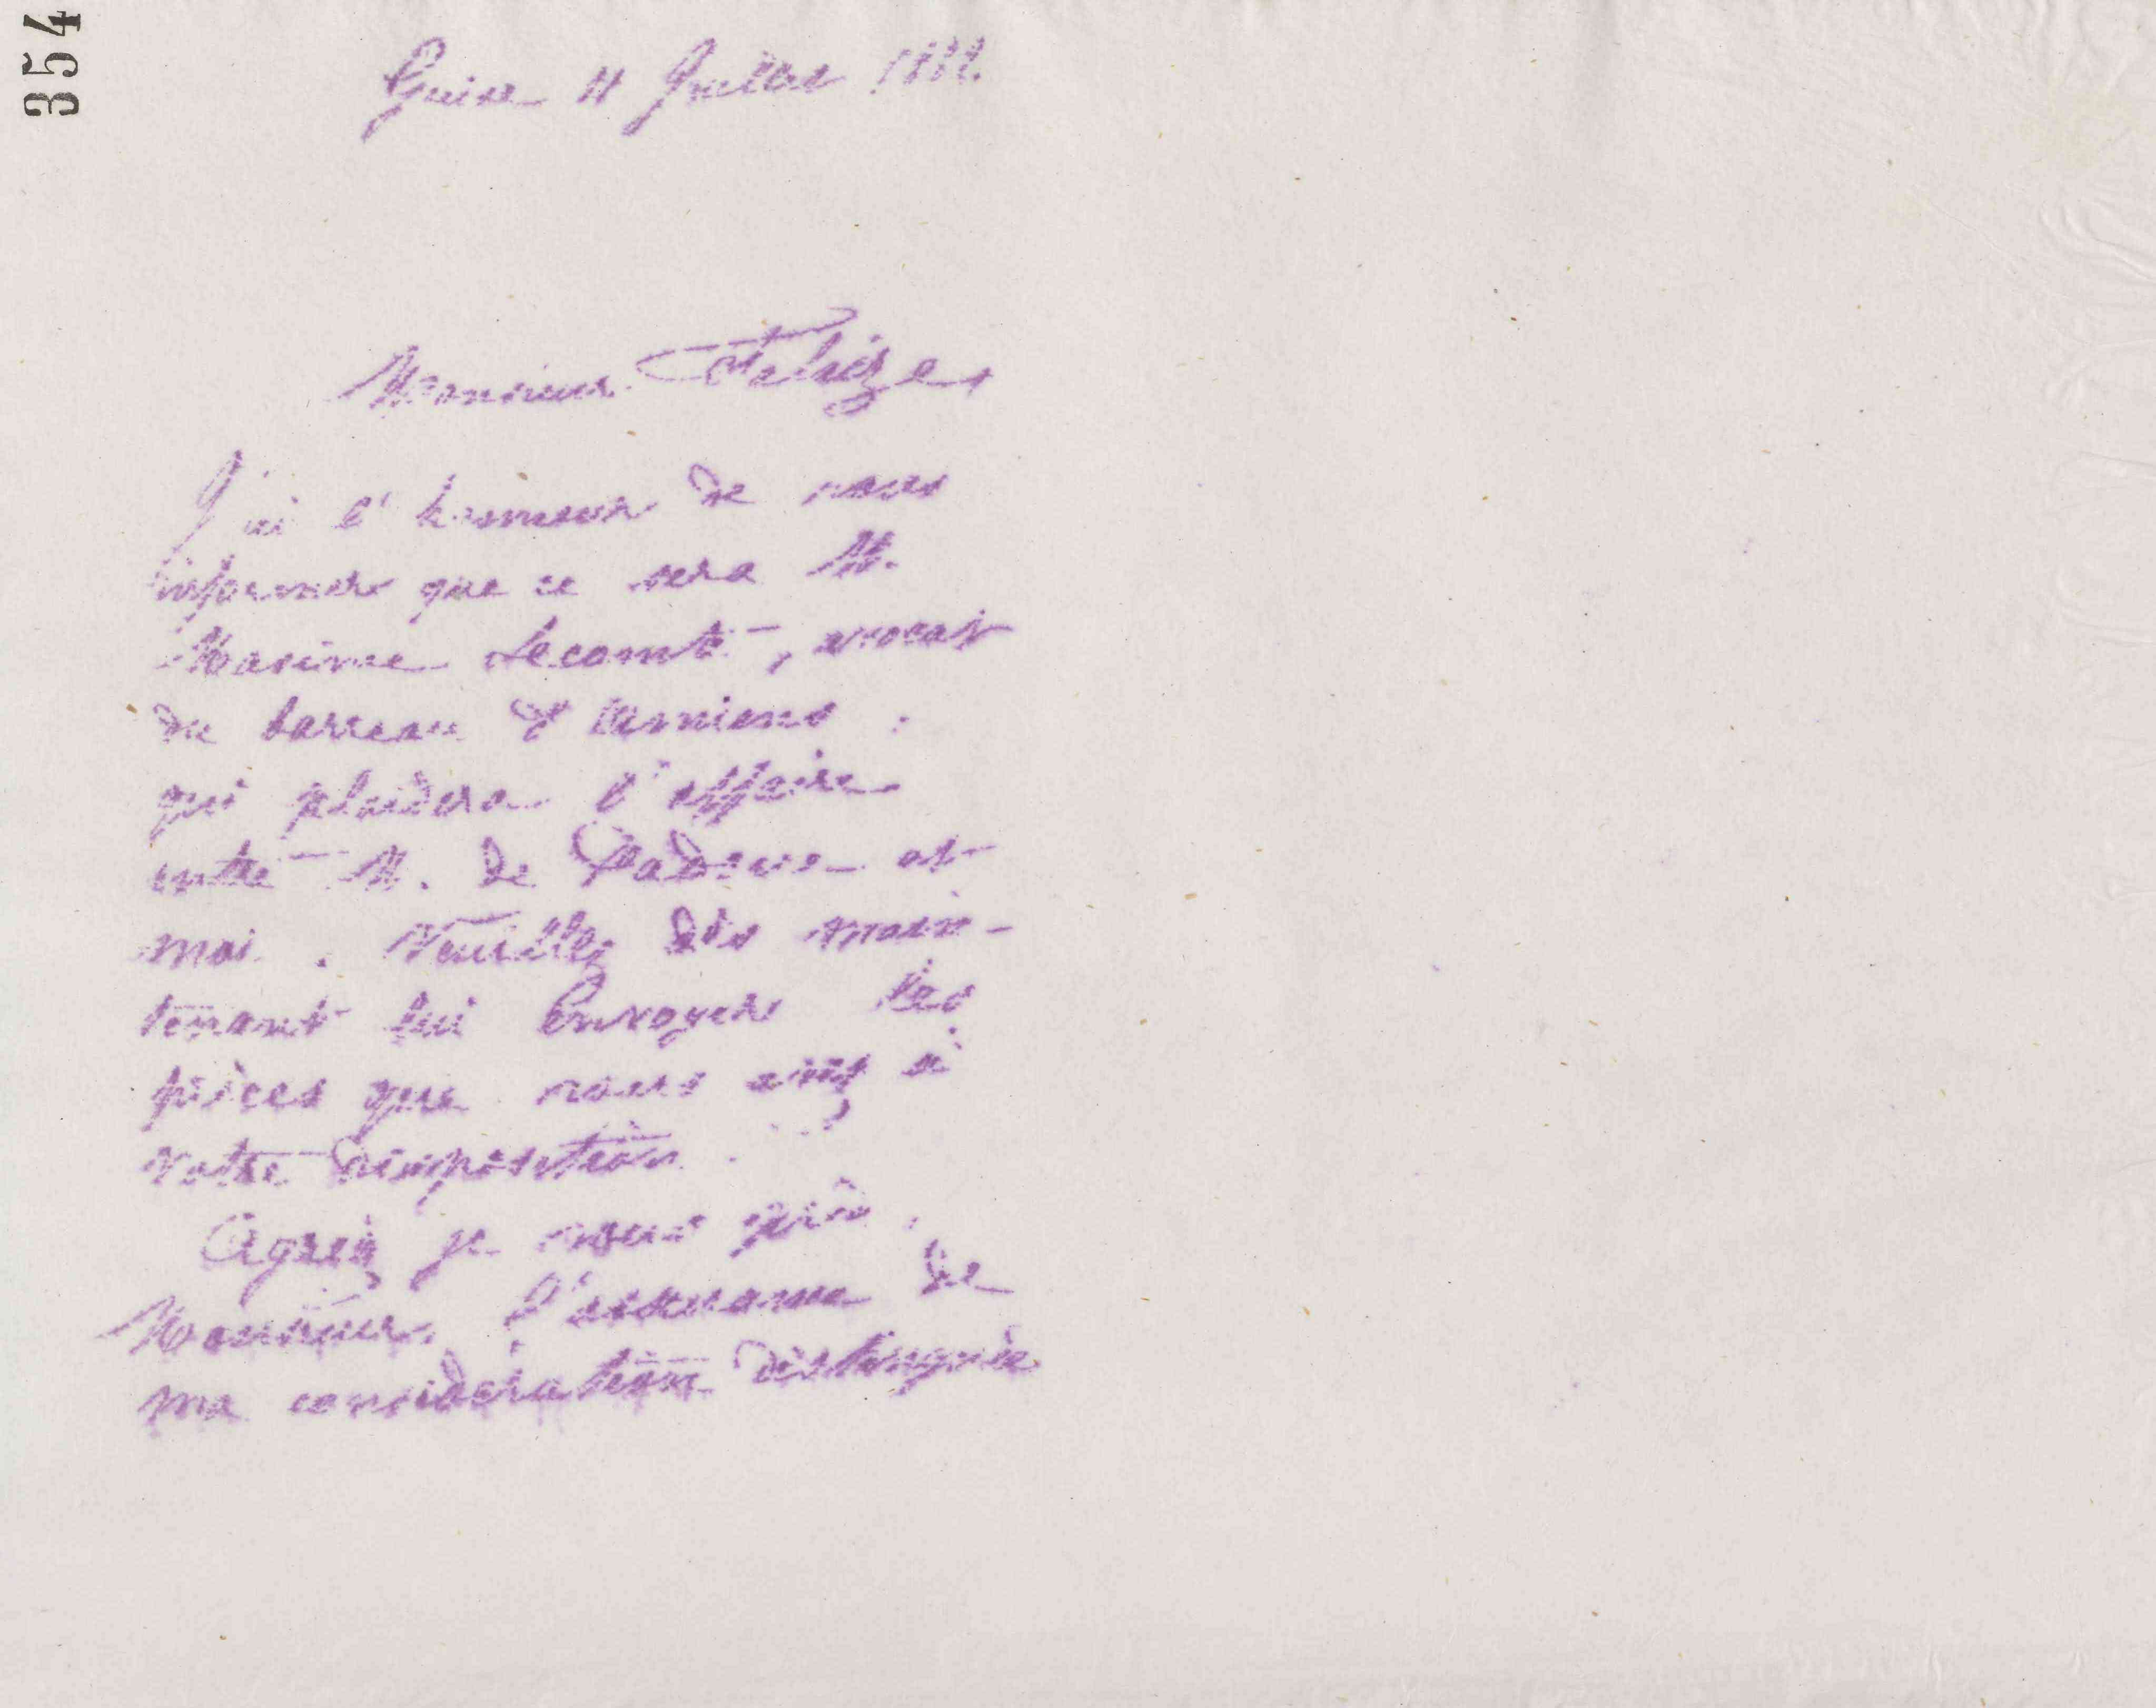 354
Guise 11 Juillet 1882.
Monsieur
J'ai l'honneur de vous
informer que ce sera M.
Maxime Lecomte, avocat
du barreau d'Amiens,
qui plaidera l'affaire
entre M. de Padoue et
moi. Veuillez dès main-
tenant lui envoyer les
pièces que vous avez à
votre disposition.
Agréez je vous prie,
Monsieur, l'assurance de
ma considération distinguée